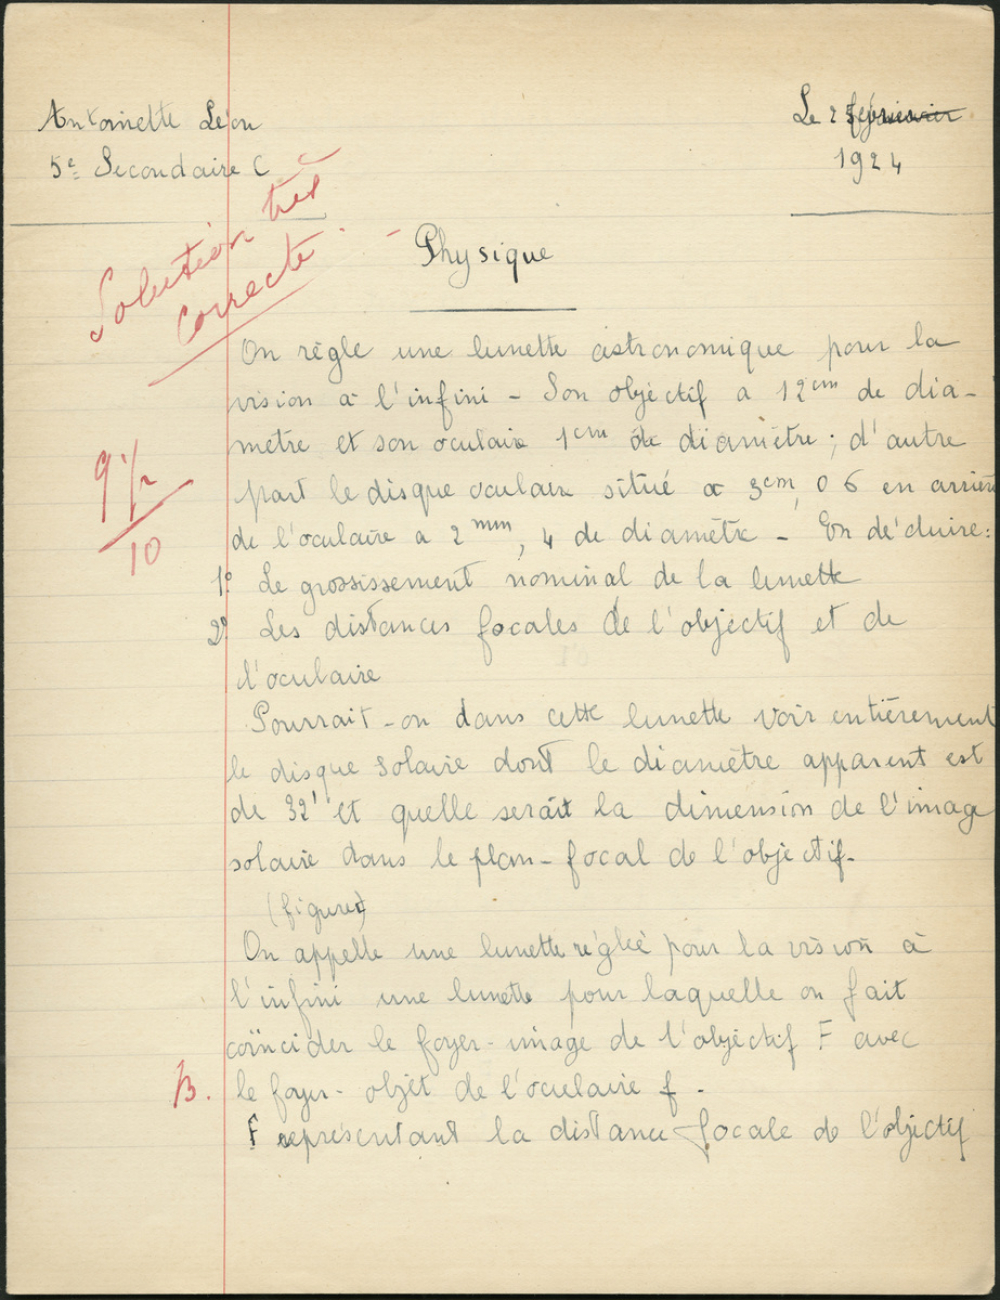 Antoinette Léon
Le 25 février
5e Secondaire C
1924
Solution très
correcte.
Physique
On règle une lunette astronomique pour la
vision à l'infini - Son objectif a 12cm de dia-
mètre et son oculaire 1cm de diamètre ; d'autre
part le disque oculaire situé à 3cm, 06 en arrière
de l'oculaire a 2mm, 4 de diamètre - En déduire :
9 1/2
10
1° Le grossissement nominal de la lunette
2° Les distances focales de l'objectif et de
l'oculaire
Pourrait-on dans cette lunette voir entièrement
le disque solaire dont le diamètre apparent est
de 32' et quelle serait la dimension de l'image
solaire dans le plan-focal de l'objectif.
(figure)
On appelle une lunette réglée pour la vision à
l'infini une lunette pour laquelle on fait
coïncider le foyer-image de l'objectif F avec
B. le foyer-objet de l'oculaire f.
F représentant la distance focale de l'objectif